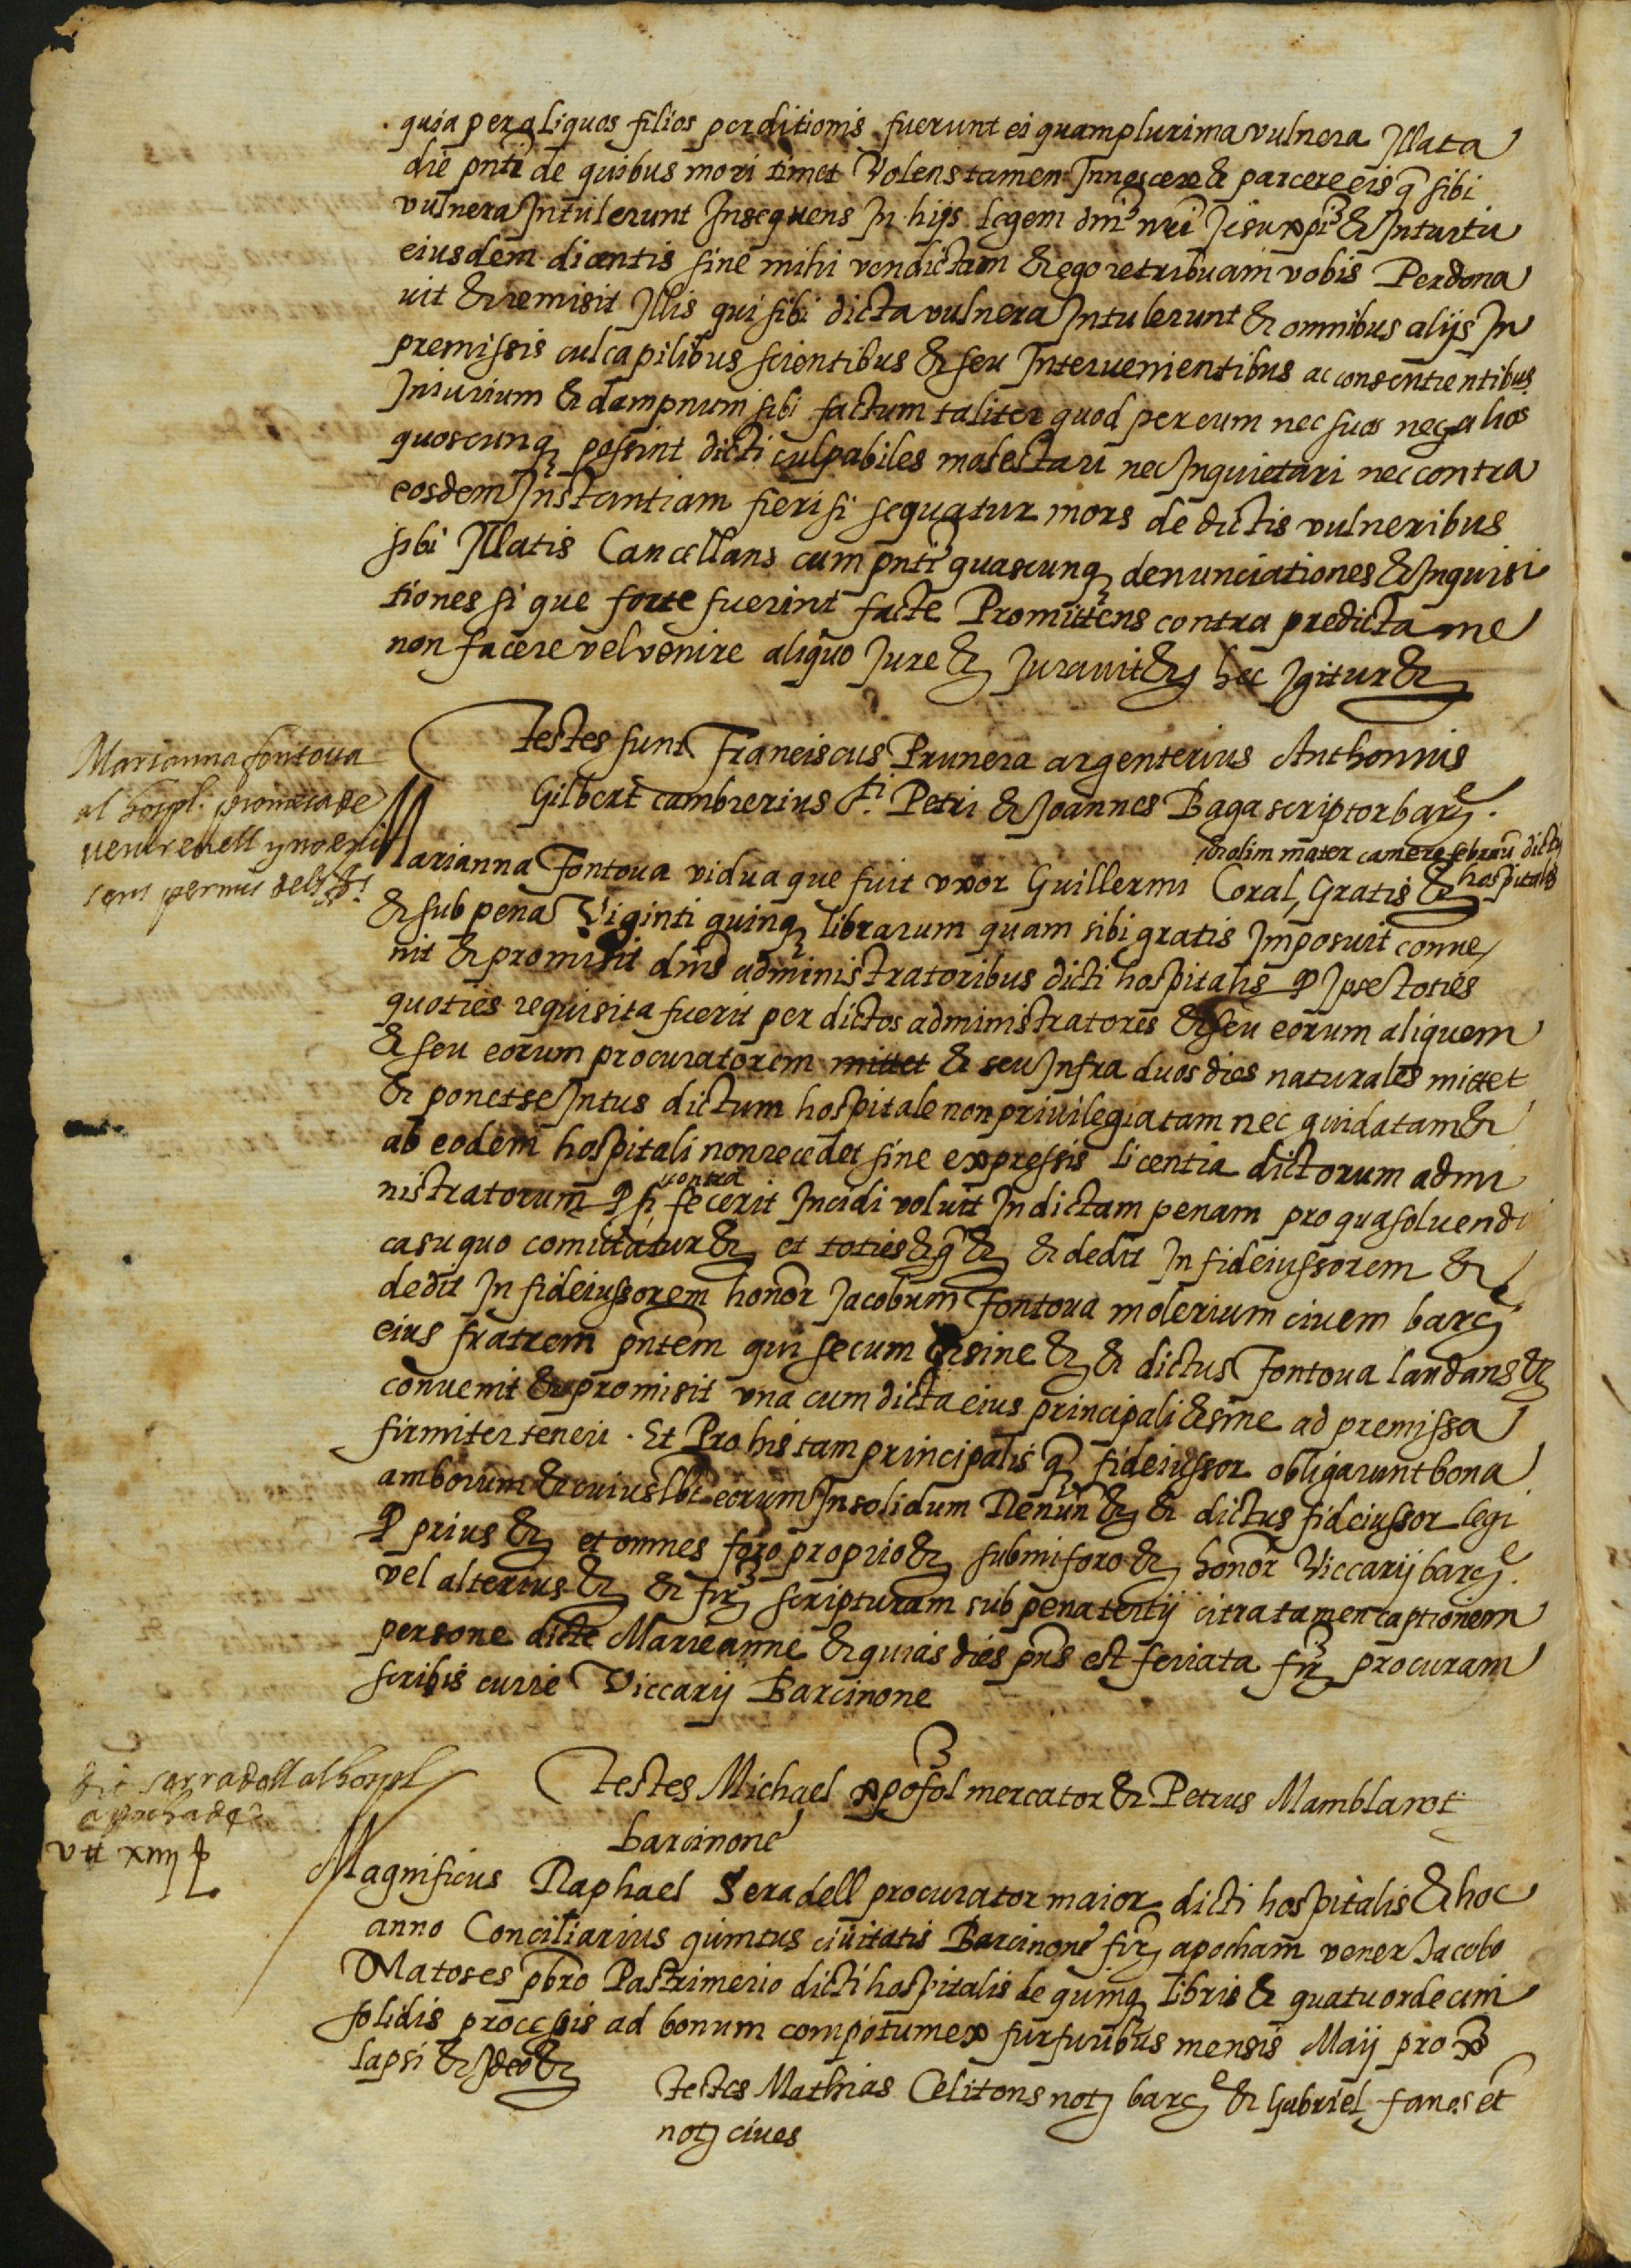 quia per aliquos filios perditionis fuerunt ei quamplurima vulnera Illata
die pnti de quibus mori timet Volens tamen Innoscere & parcere eis q sibi
vulnera Intulerunt Insequens In hijs legem dni nri Jesu xpi & Intuitu
eiusdem dicentis sine mihi vendictam & ego retribuam vobis Perdona
uit & remisit Illis qui sibi dicta vulnera Intulerunt & omnibus alijs In
premissis culcapilibus scientibus & seu Interuenientibus ac consentientibus
Iniurium & dampnum sibi factum taliter quod per eum nec suos neq alios
quoscunq possint dicti culpabiles molestari nec Inquietari nec contra
eosdem Instantiam fieri si sequatur mors de dictis vulneribus
sibi Illatis Cancellans cum pnti quascunq denunciationes & Inquisi
tiones si que forte fuerint facte Promittens contra predicta me
non facere vel venire aliquo Jure & Jurauit & hec Igitur &
Testes sunt Franciscus Prunera argenterius Anthonius
Gilbert cambrerius Sti Petri & Joannes Baga scriptor barᵉ.
Marianna fontoua
al hospl. promeia de
venir en ell y no exir
sens permis dels Srs
olim mater camere febrau dicti
hospitalis
Marianna Fontoua vidua que fuit vxor Guillermi Coral, Gratis &
& sub pena Viginti quinq librarum quam sibi gratis Imposuit conue
nit & promisit dnis administratoribus dicti hospitalis q Ipse toties
quoties requisita fuerit per dictos administratores & seu eorum aliquem
& seu eorum procuratorem mittet & seu Infra duos dies naturales mittet
& ponet se Intus dictum hospitale non priuilegiatam nec guidatam &
ab eodem hospitali non recedet sine expressis licentia dictorum admi
nistratorum q si contra fecerit Incidi voluit In dictam penam pro qua soluend
casu quo comittatur & et toties & q & & dedit In fideiussorem &
dedit In fideiussorem honor Jacobum Fontoua molerium ciuem barcᵉ
eius fratrem pntem qui secum & sine & & dictus Fontoua laudans &
conuenit & promisit vna cum dicta eius principali & sine ad premissa
firmiter teneri. Et Pro his tam principalis q fideiussor obligarunt bona
amborum & cuiuslbt eorum Insolidum Renun & & dictus fideiussor legi
q prius & et omnes foro proprio & submi foro & honor Viccarij barcᵉ.
vel alterius & & fir scripturam sub pena tertij citra tamen captionem
persone dicte Marieanne & quias dies pns est feriata fir procuram
scribis curie Viccarij Barcinone
Testes Michael xpofol mercator & Petrus Mamblarot
barcinone
dit sarradell al hospl
apocha de
v ll xiiij ß
Magnificus Raphael Seradell procurator maior dicti hospitalis & hoc
anno Conciliarius quintus ciuitatis Barcinone fir apocham vener Jacobo
Matoses pbro Pastrimerio dicti hospitalis de quinq libris & quatuordecim
solidis processis ad bonum compotum ex furfuribus mensis Maij prox
lapsi & Ideo &
Testes Mathias Celitons not barcᵉ & Gabriel fanoset
not ciues